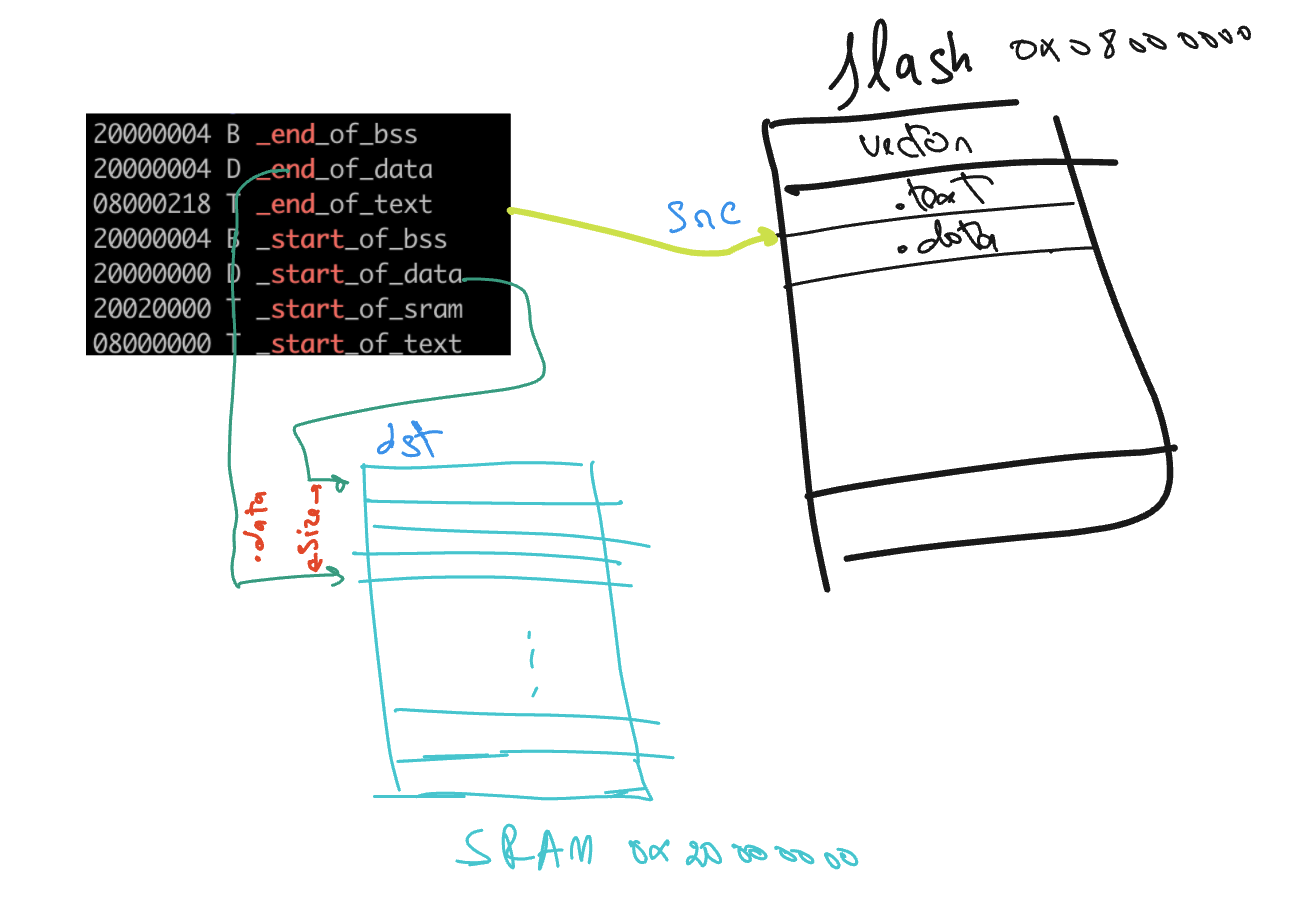 flash 0x08000000
20000004 B _end_of_bss
20000004 D _end_of_data
08000218 T _end_of_text
20000004 B _start_of_bss
20000000 D _start_of_data
20020000 T _start_of_sram
08000000 T _start_of_text
vector
.text
.data
src
dst
.data
size
SRAM 0x20000000